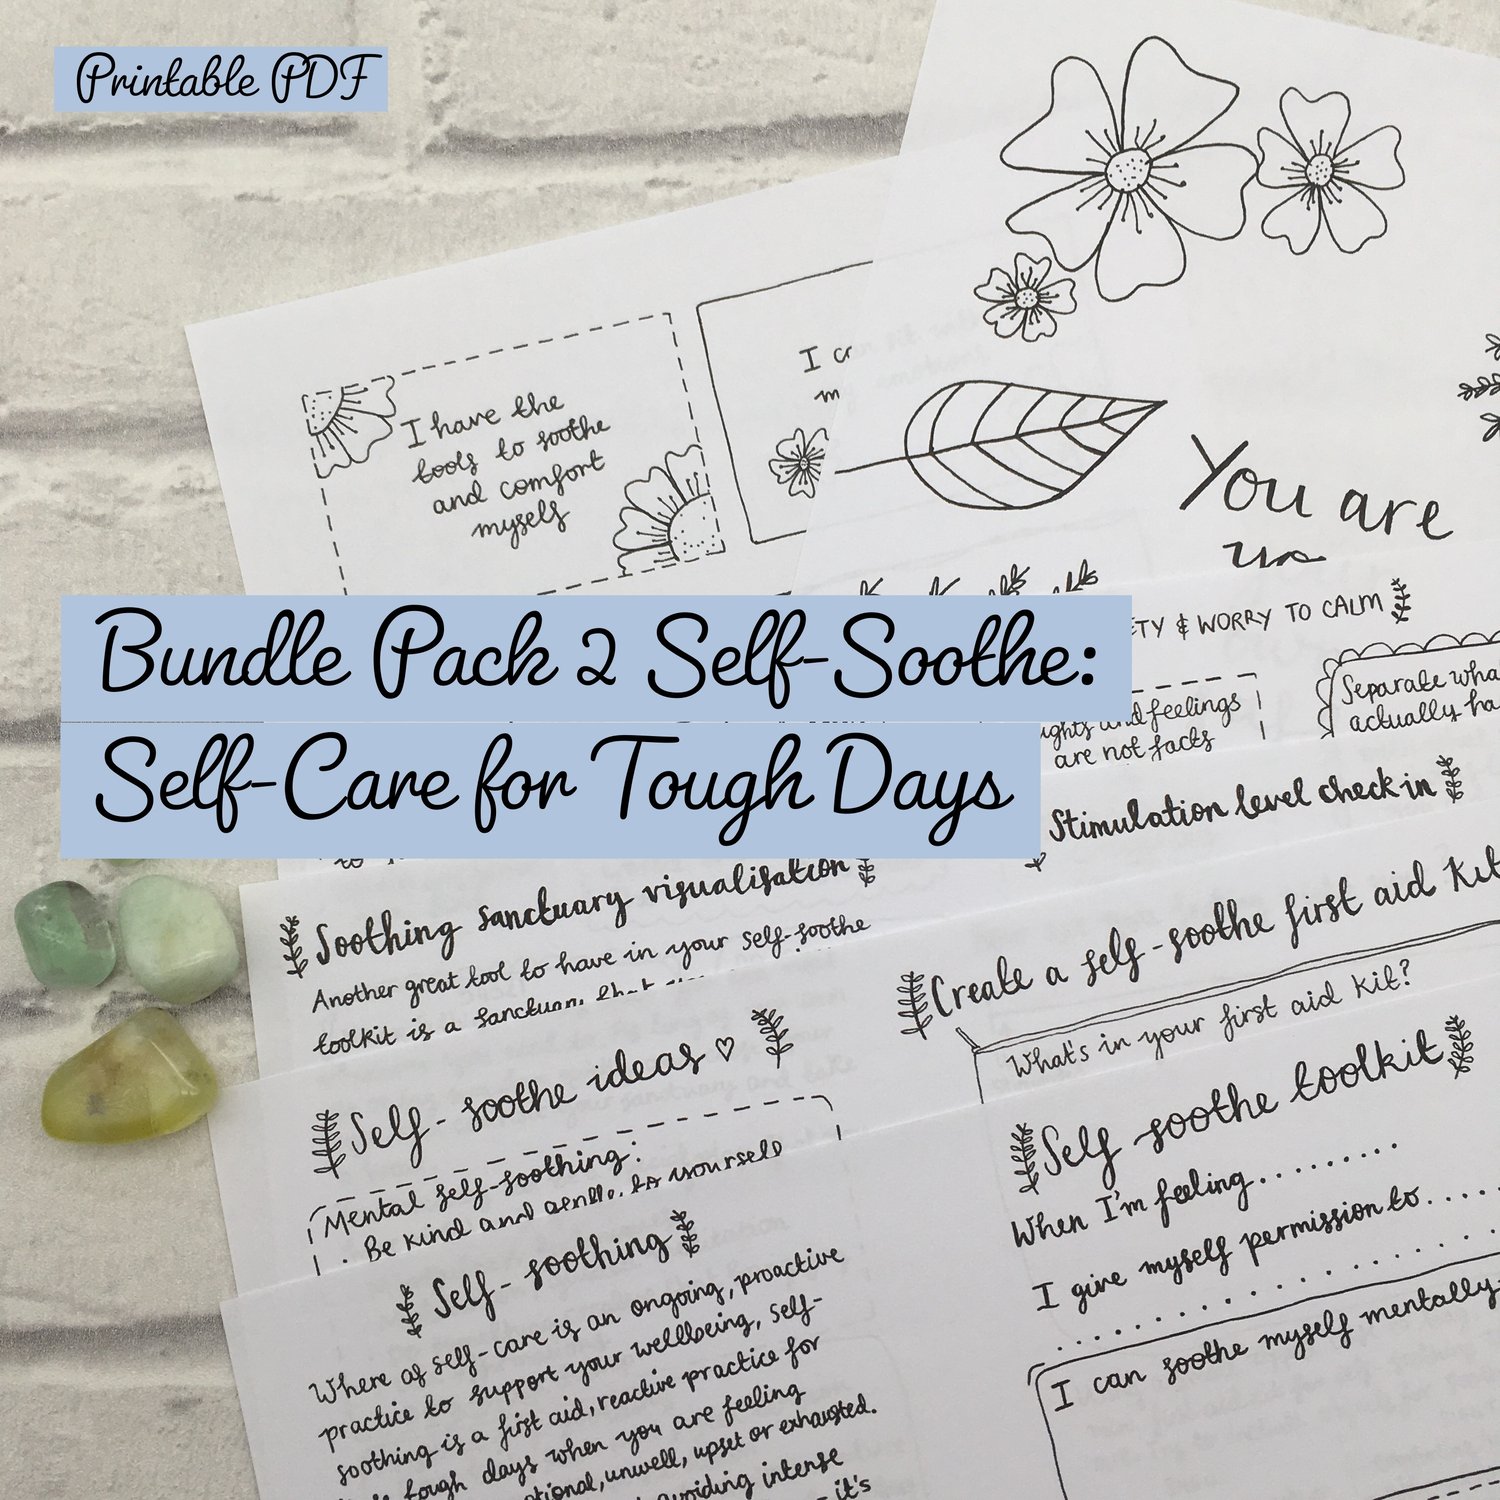 Printable PDF
I have the
tools to soothe
and comfort
myself
I
You are
Bundle Pack 2 Self-Soothe:
Self-Care for Tough Days
& WORRY TO CALM
and feelings
are not facts
Separate
actually
Stimulation level check in
Soothing sanctuary visualisation
Another great tool to have in your self-soothe
toolkit is a sanctuary that
Create a self-soothe first aid kit
What's in your first aid kit?
Self-soothe ideas ♡
Mental self-soothing:
· Be kind and gentle to yourself
Self soothe toolkit
When I'm feeling.........
I give myself permission to.....
I can soothe myself mentally
Self-soothing
Where as self-care is an ongoing, proactive
practice to support your wellbeing, self-
soothing is a first aid, reactive practice for
tough days when you are feeling
unwell, upset or exhausted.
avoiding intense
it's